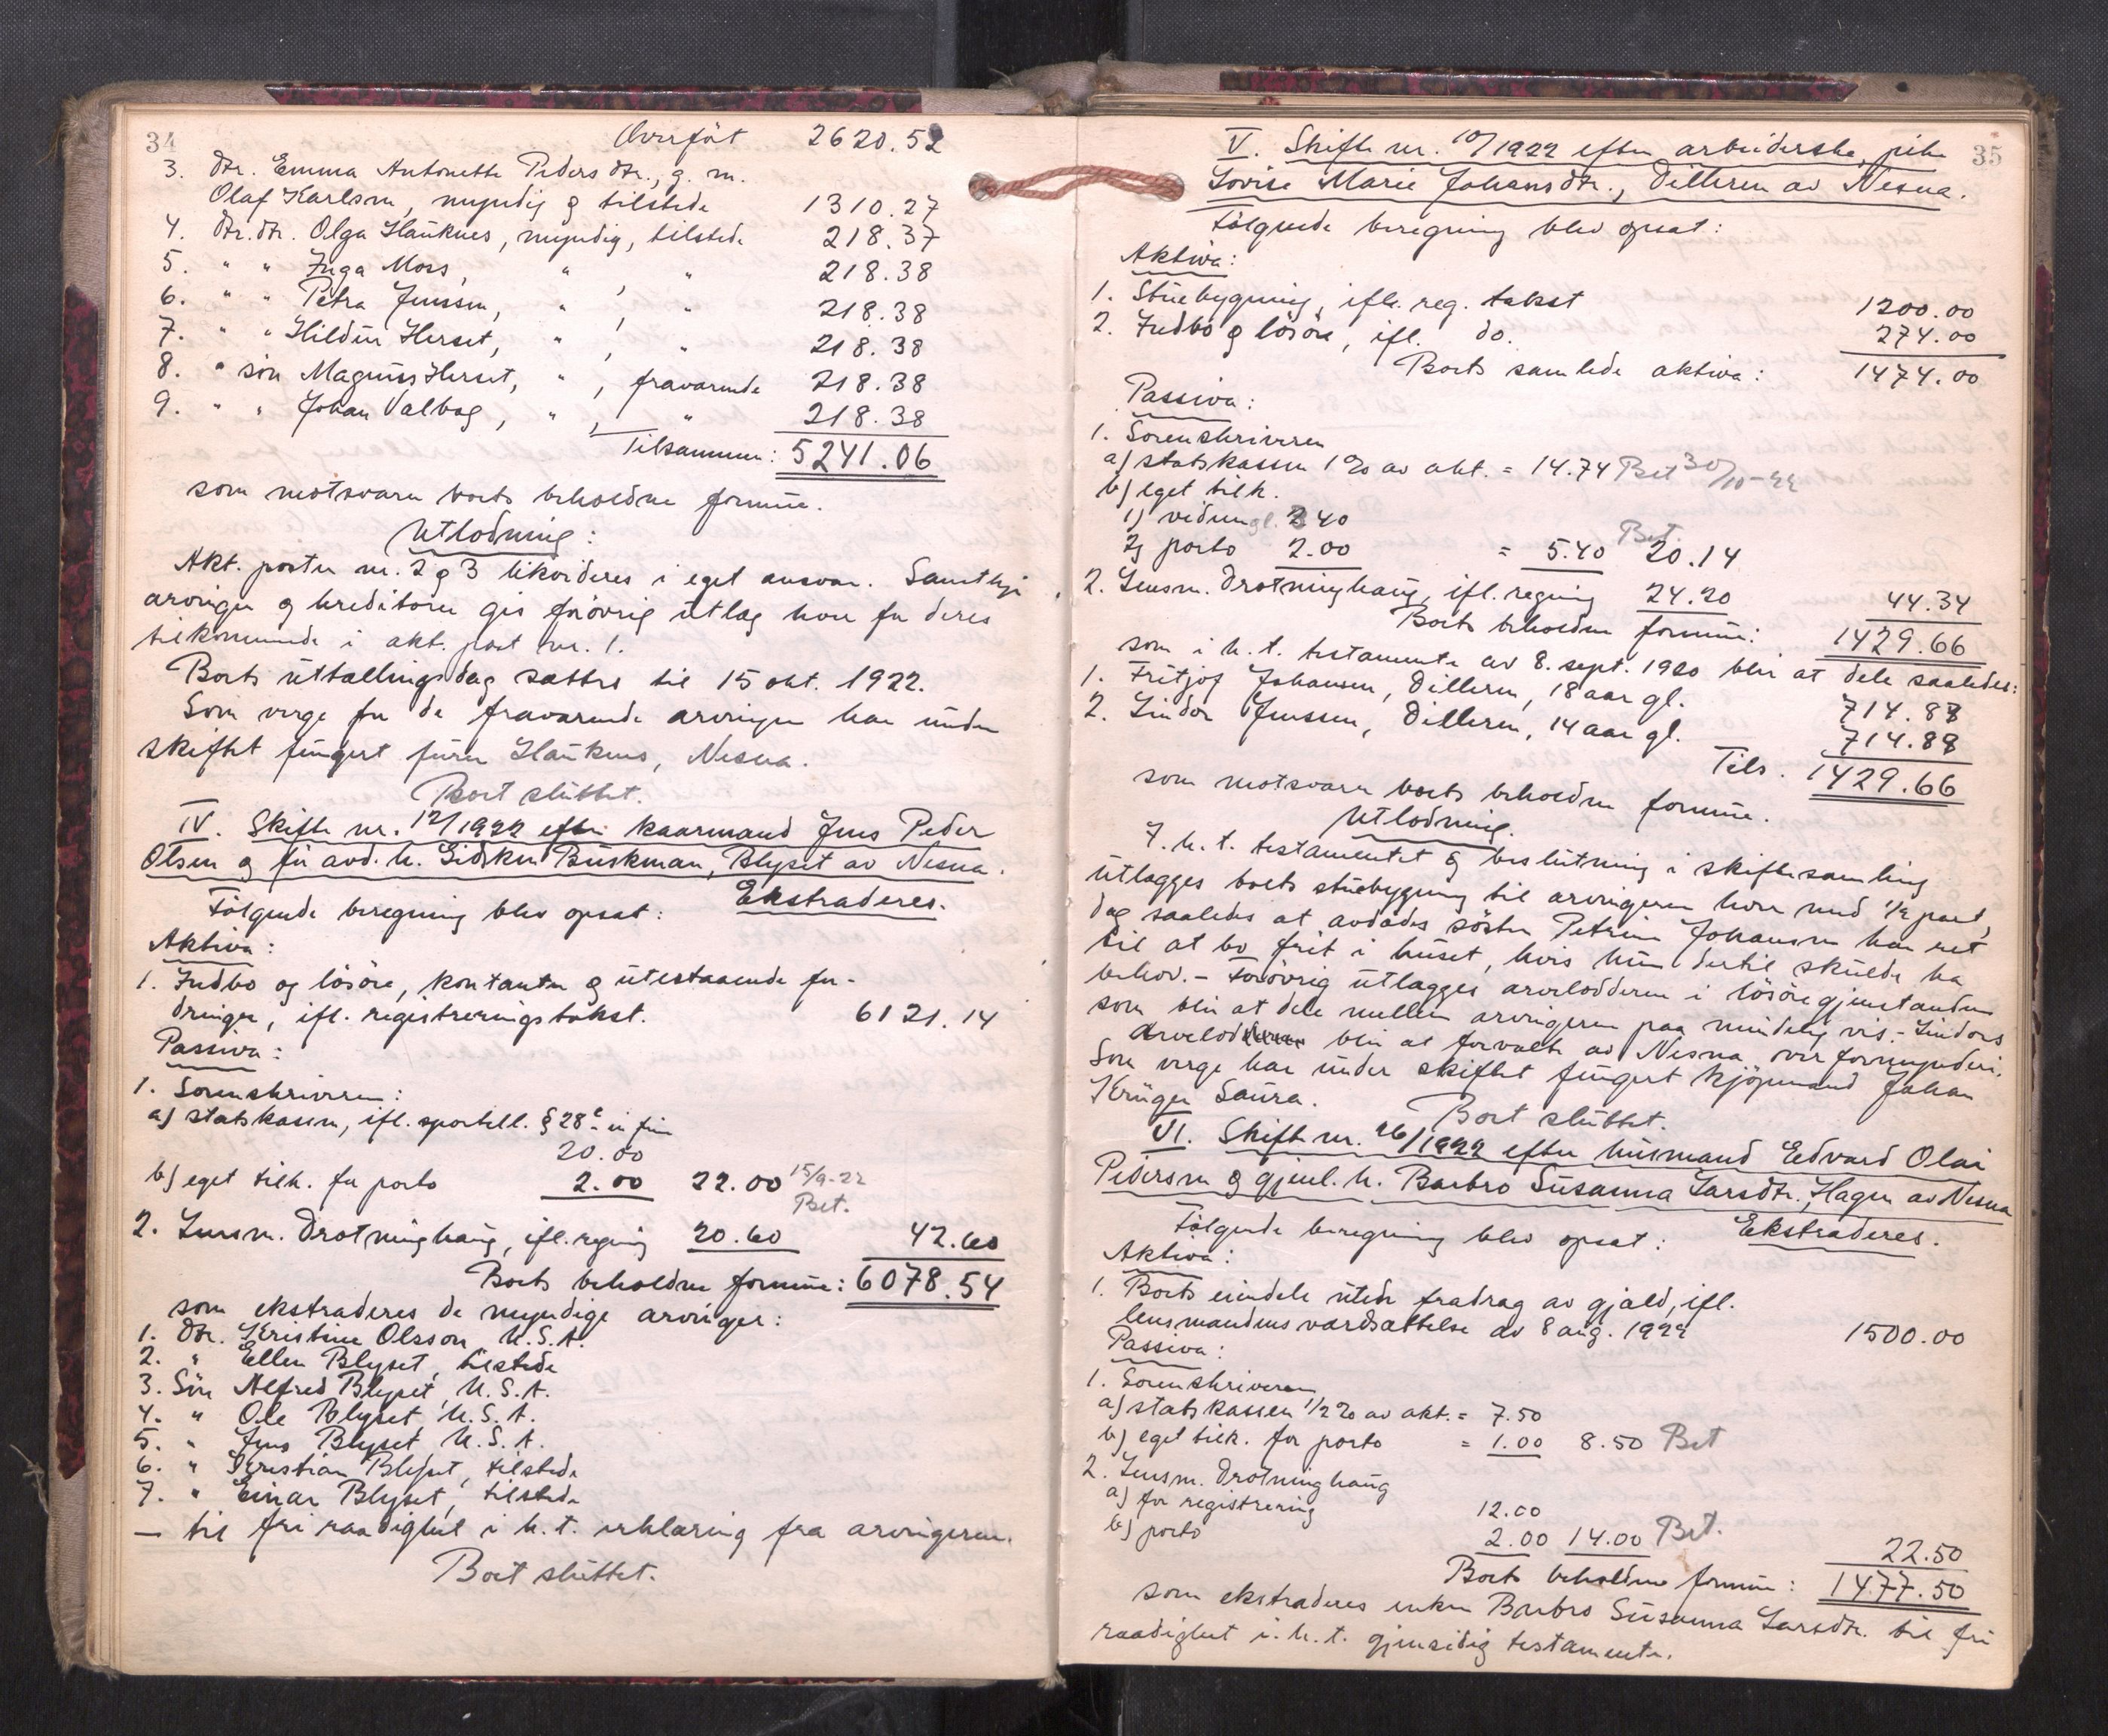 34
Overført 2620.52
3. Dtr. Emma Antonette Pedersdtr., g. m.
Olaf Karlsen, myndig g tilstede 1310.27
4. Dtr.dtr. Olga Hauknes, myndig, tilstede 218.37
5. " " Inga Moss, " , " 218.38
6. " " Petra Jenssen, " , " 218.38
7. " " Hildur Herset, " , " 218.38
8. " søn Magnus Herset, " , fraværende 218.38
9. " " Johan Valbog, " , " 218.38
Tilsammen: 5241.06
som motsvarer boets beholdne formue.
Utlodning:
Akt. poster nr. 2 g 3 likvideres i eget ansvar. Samtlige
arvinger g kreditorer gis forøvrig utlæg hver for deres
tilkommende i akt. post nr. 1.
Boets uttællingsdag sættes til 15 okt. 1922.
Som verge for de fraværende arvinger har under
skiftet fungert fører Hauknes, Nesna.
Boet sluttet.
IV. Skifte nr. 12/1922 efter kaarmand Jens Peder
Olsen g før avd. h. Sidsken Buskman, Blyset av Nesna.
Følgende beregning blev opsat: Ekstraderes.
Aktiva:
1. Indbo og løsøre, kontanter g utestaaende for-
dringer, ifl. registreringstakst. 6121.14
Passiva:
1. Sorenskriveren:
a) statskassen, ifl. sportell. § 28 c in fin
20.00
b) eget tilk. for porto 2.00 22.00 15/9-22
Bet.
2. Lensm. Drotninghaug, ifl. regning 20.60 42.60
Boets beholdne formue: 6078.54
som ekstraderes de myndige arvinger:
1. Dtr. Kristine Olsson, U.S.A.
2. " Ellen Blyset, tilstede
3. Søn Alfred Blyset, U.S.A.
4. " Ole Blyset, U.S.A.
5. " Jens Blyset, U.S.A.
6. " Kristian Blyset, tilstede
7. " Einar Blyset, tilstede
— til fri raadighet i h. t. erklæring fra arvingerne.
Boet sluttet.
35
V. Skifte nr. 10/1922 efter arbeiderske, pike
Lovise Marie Johansdtr., Dilleren av Nesna.
Følgende beregning blev opsat:
Aktiva:
1. Stuebygning, ifl. reg. takst 1200.00
2. Indbo g løsøre, ifl. do. 274.00
Boets samlede aktiva: 1474.00
Passiva:
1. Sorenskriveren
a) statskassen 1 % av akt. = 14.74 Bet 30/10-22
b) eget tilk.
1) vidnegl. 3.40
2) porto 2.00 = 5.40 Bet. 20.14
2. Lensm. Drotninghaug, ifl. regning 24.20 44.34
Boets beholdne formue: 1429.66
som i h. t. testamente av 8. sept. 1920 blir at dele saaledes:
1. Fritjof Johansen, Dilleren, 18 aar gl. 714.83
2. Lindor Jenssen, Dilleren, 14 aar gl. 714.83
Tils. 1429.66
som motsvarer boets beholdne formue.
Utlodning.
I h. t. testamentet g beslutning i skiftesamling
utlægges boets stuebygning til arvingerne hver med 1/2 part,
dog saaledes at avdødes søster Petrine Johansen har ret
til at bo frit i huset, hvis hun dertil skulde ha
behov. – Forøvrig utlægges arvelodderne i løsøregjenstandene
som blir at dele mellem arvingerne paa mindelig vis. – Lindors
arvelod blir at forvalte av Nesna overformynderi.
Som verge har under skiftet fungert kjøpmand Johan
Krüger Saura.
Boet sluttet.
VI. Skifte nr. 26/1922 efter husmand Edvard Olai
Pedersen g gjenl. h. Barbro Susanna Larsdtr., Hagen av Nesna
Følgende beregning blev opsat: Ekstraderes.
Aktiva:
1. Boets eiendele uten fradrag av gjæld, ifl.
lensmandens værdsættelse av 8 aug. 1922 1500.00
Passiva:
1. Sorenskriveren
a) statskassen 1/2 % av akt. = 7.50
b) eget tilk. for porto = 1.00 8.50 Bet
2. Lensm. Drotninghaug
a) for registrering 12.00
b) porto 2.00 14.00 Bet. 22.50
Boets beholdne formue: 1477.50
som ekstraderes enken Barbro Susanna Larsdtr. til fri
raadighet i. h. t. gjensidig testamente.